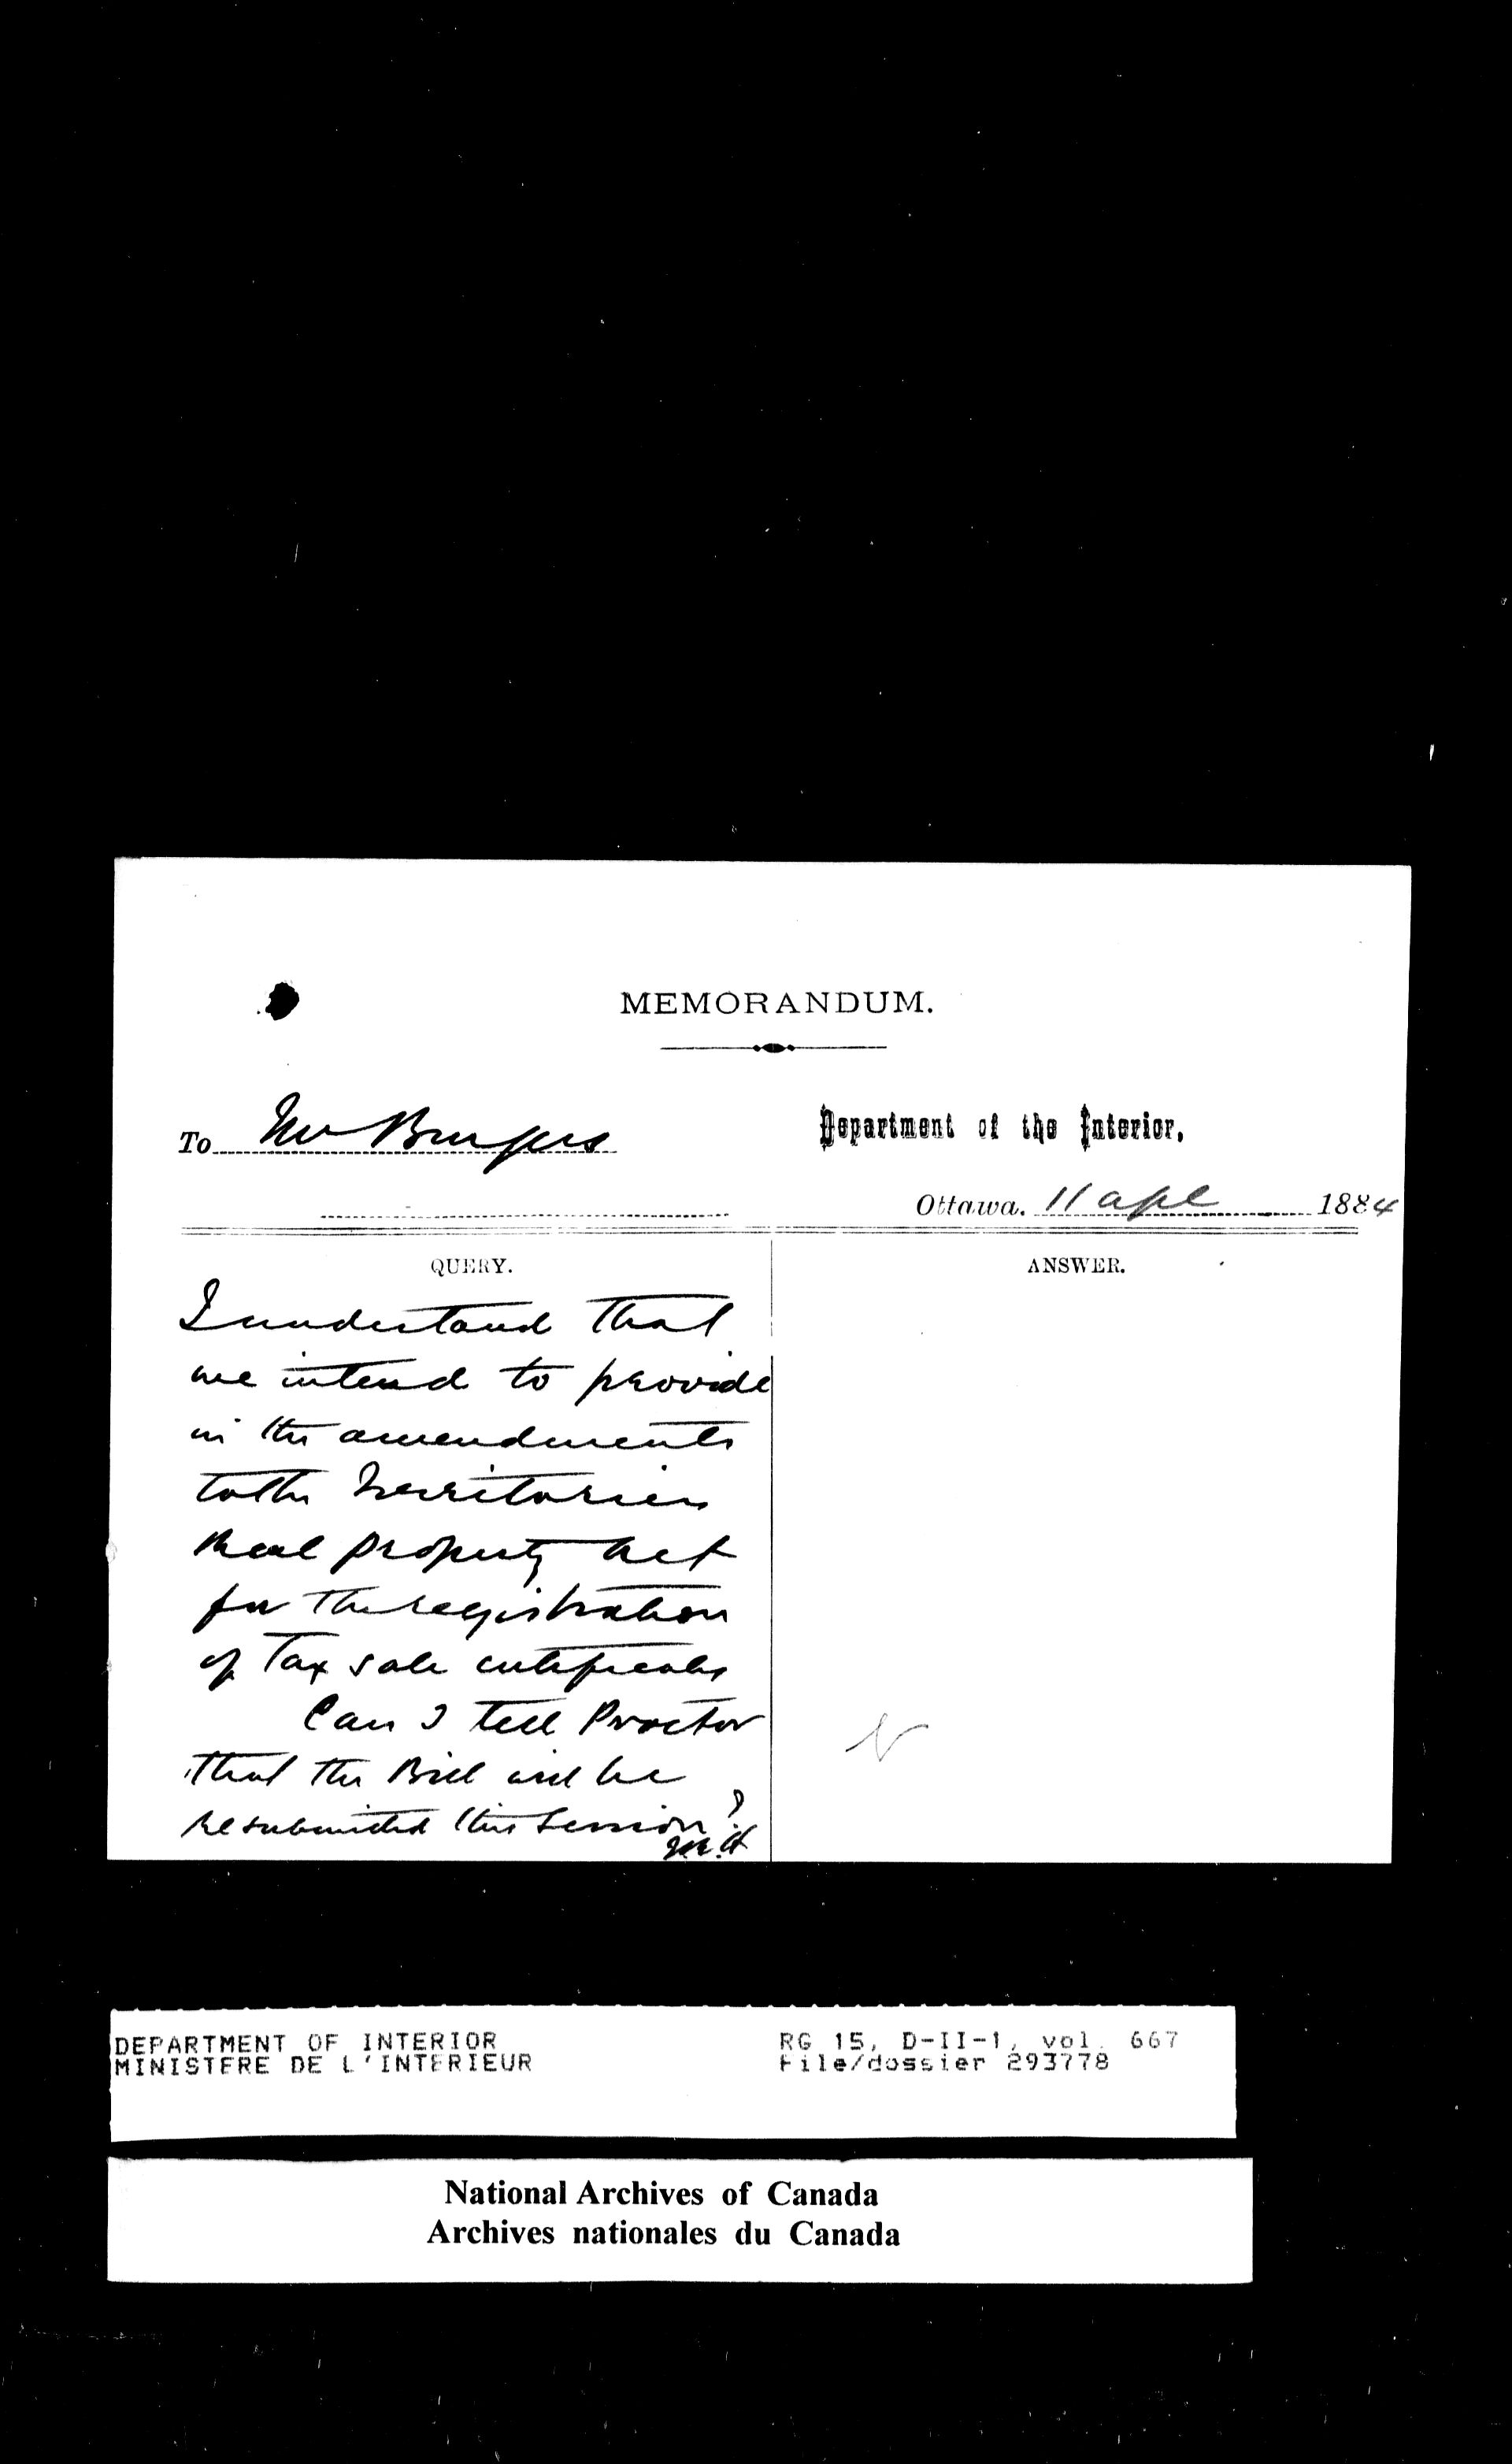 MEMORANDUM.
To Mr Burgess
Department of the Interior,
Ottawa. 11 apl 1884
QUERY.
I understand that
we intend to provide
in the amendments
to the Territories
Real property Act
for the registration
of Tax sale certificates
Can I tell Proctor
that the Bill will be
resubmitted this Session?
ANSWER.
DEPARTMENT OF INTERIOR
MINISTERE DE L'INTERIEUR
RG 15, D-II-1, vol. 667
File/dossier 293778
National Archives of Canada
Archives nationales du Canada